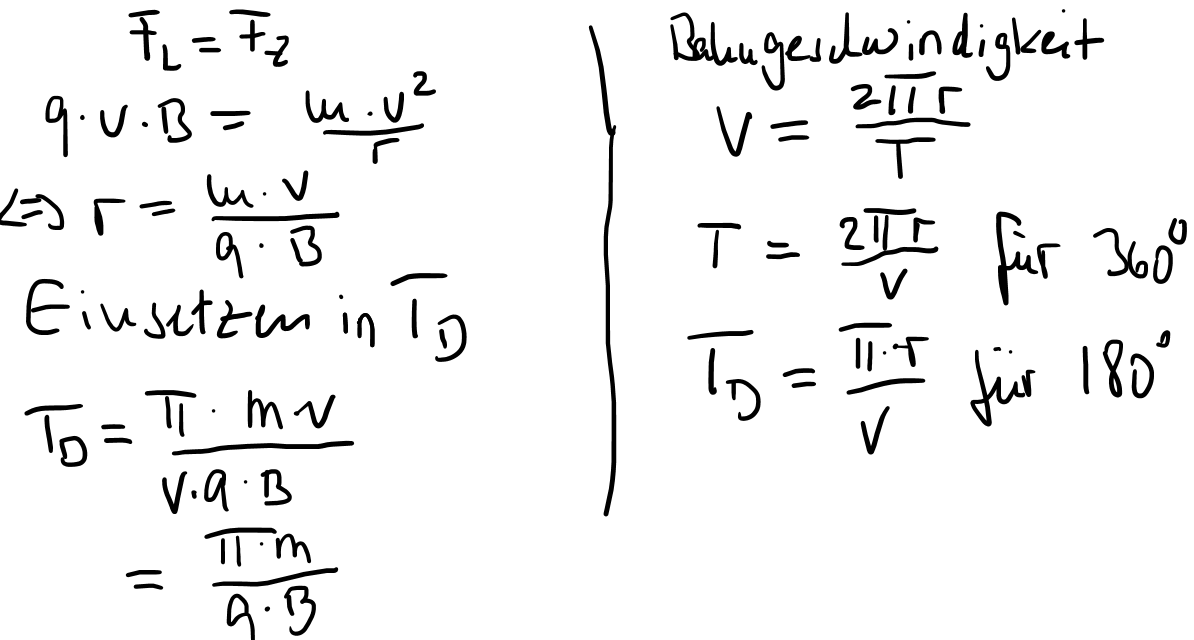 F_L = F_Z
q · v · B = m · v² / r
<=> r = m · v / q · B
Einsetzen in T_D
T_D = π · m v / v · q · B
= π · m / q · B
Bahngeschwindigkeit
V = 2πr / T
T = 2πr / v für 360°
T_D = π · r / v für 180°